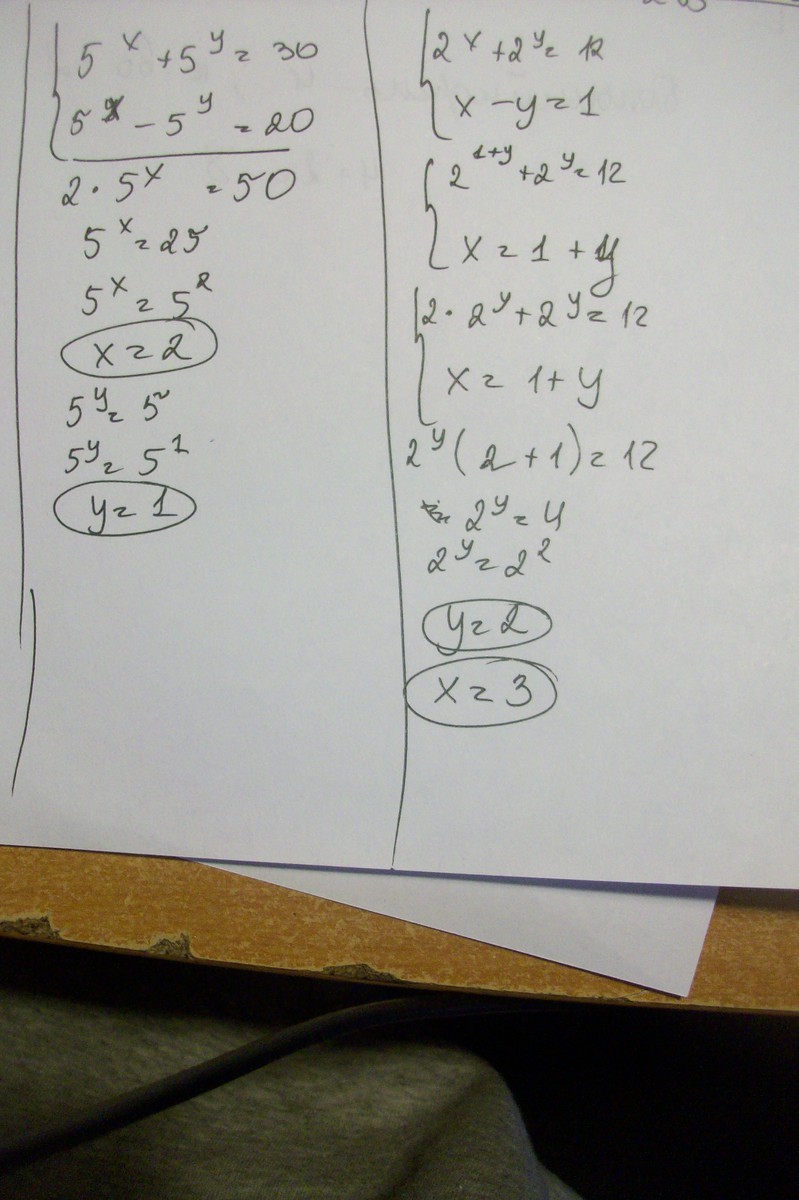 5^x + 5^y = 30
5^x - 5^y = 20
2 · 5^x = 50
5^x = 25
5^x = 5^2
x = 2
5^y = 5
5^y = 5^1
y = 1
2^x + 2^y = 12
x - y = 1
2^{1+y} + 2^y = 12
x = 1 + y
2 · 2^y + 2^y = 12
x = 1 + y
2^y (2 + 1) = 12
2^y = 4
2^y = 2^2
y = 2
x = 3